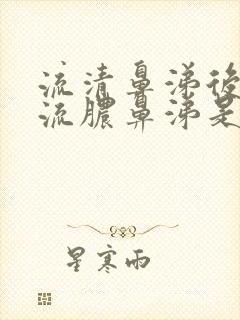 流清鼻涕後
流膿鼻涕是
星寒雨